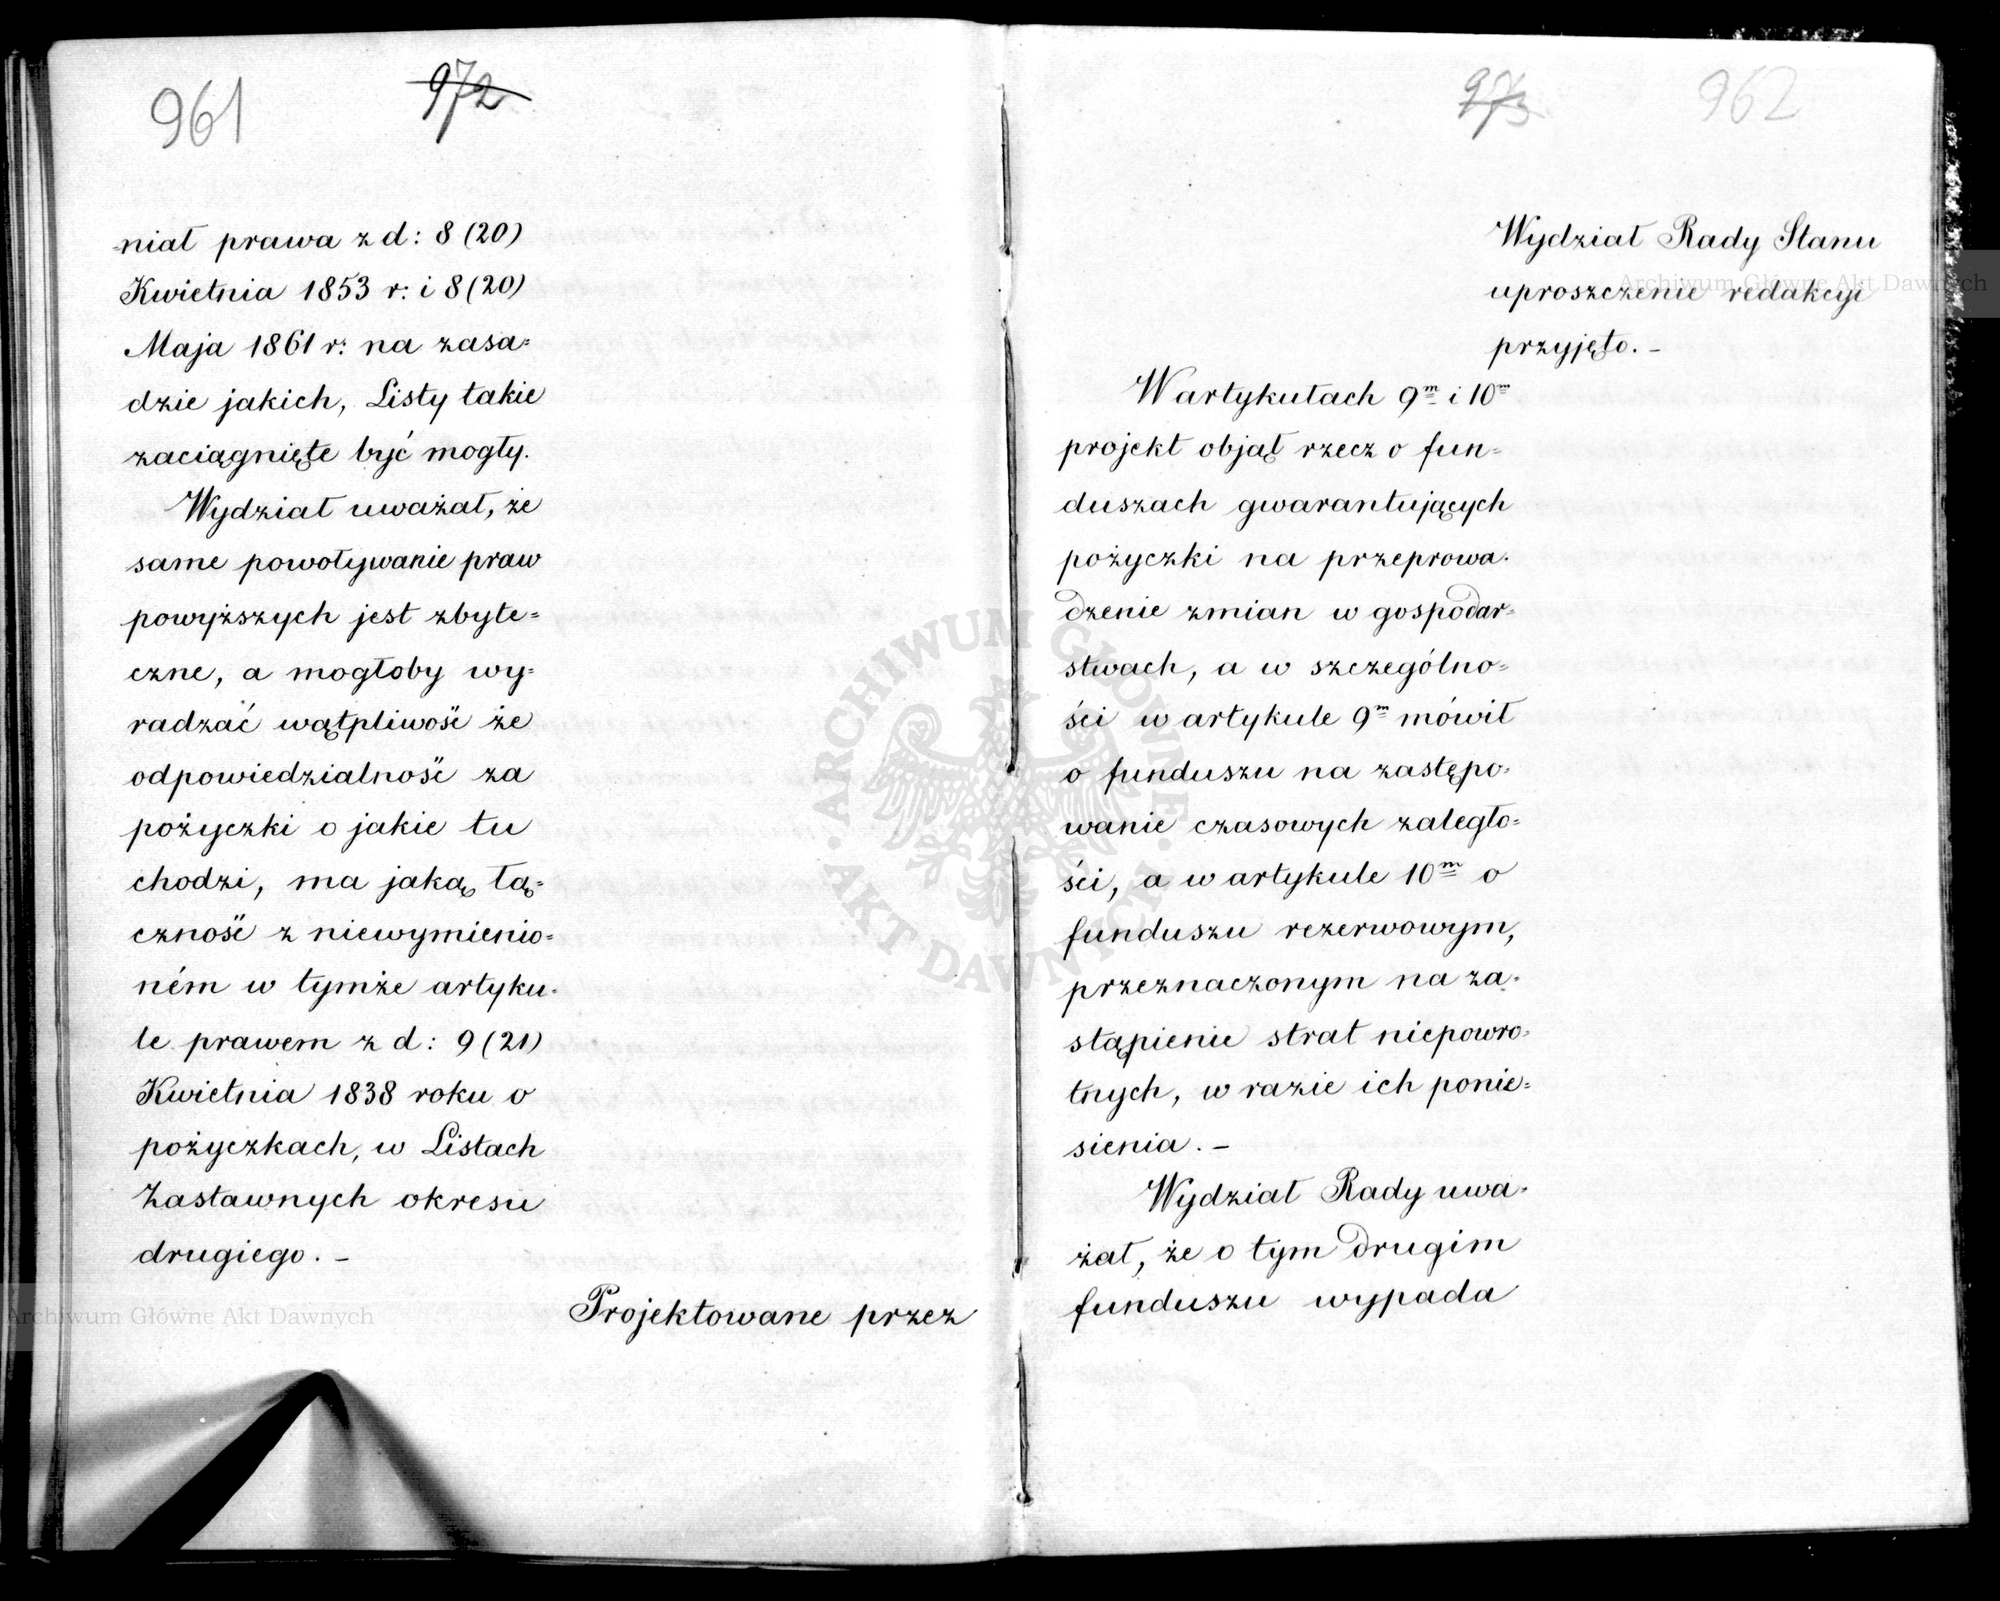 961
972
-niał prawa z d: 8 (20)
Kwietnia 1853 r: i 8 (20)
Maja 1861 r: na zasa=
dzie jakich, Listy takie
zaciągnięte być mogły.
Wydział uważał, że
same powoływanie praw
powyższych jest zbyte=
czne, a mogłoby wy=
radzać wątpliwość że
odpowiedzialność za
pożyczki o jakie tu
chodzi, ma jaką łą=
czność z niewymienio=
ném w tymże artyku-
le prawem z d: 9 (21)
Kwietnia 1838 roku o
pożyczkach, w Listach
Zastawnych okresu
drugiego. –
Projektowane przez
973
962
Wydział Rady Stanu
uproszczenie redakcyi
przyjęto. –
W artykułach 9m i 10m
projekt objął rzecz o fun=
duszach gwarantujących
pożyczki na przeprowa-
dzenie zmian w gospodar=
stwach, a w szczególno=
ści w artykule 9m mówił
o funduszu na zastępo=
wanie czasowych zaległo=
ści, a w artykule 10m o
funduszu rezerwowym,
przeznaczonym na za=
stąpienie strat niepowro=
tnych, w razie ich ponie=
sienia. –
Wydział Rady uwa=
żał, że o tym drugim
funduszu wypada
Archiwum Główne Akt Dawnych
Archiwum Główne Akt Dawnych
ARCHIWUM GŁÓWNE
AKT DAWNYCH